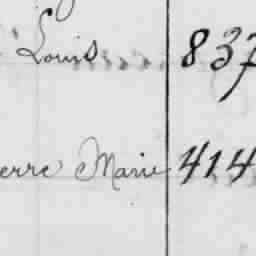 Louis 837
erre Marie 414